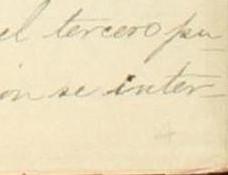 el tercero pu-
ón se inter-